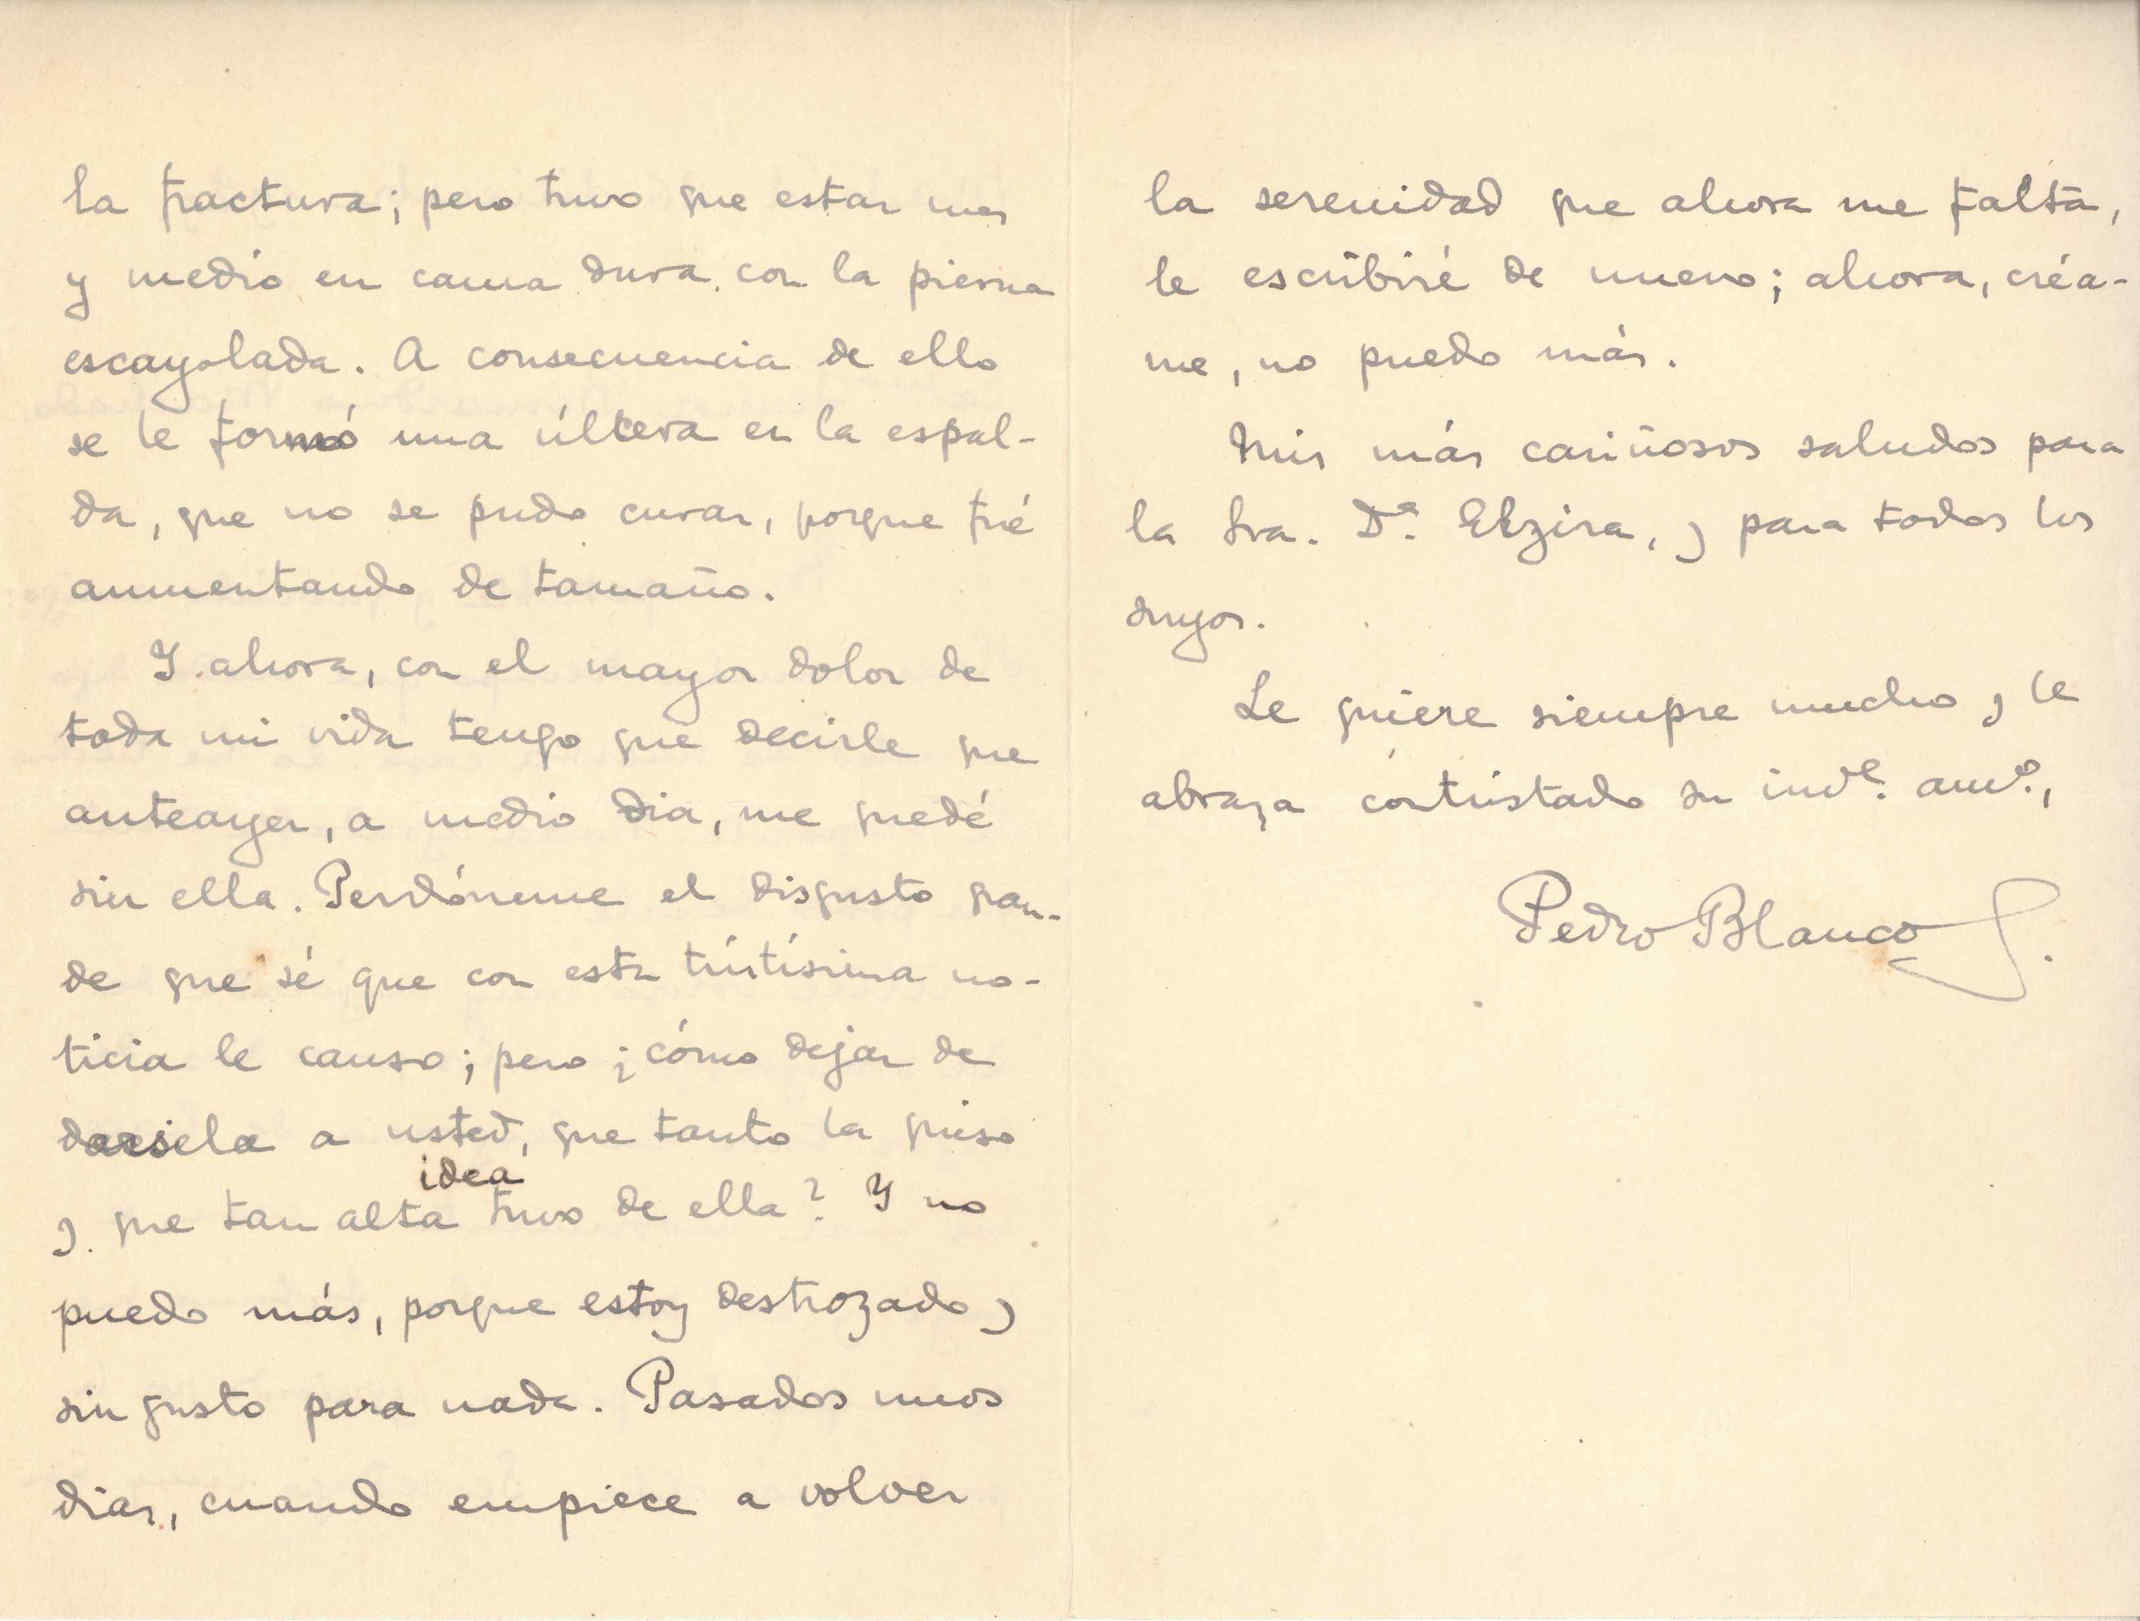 la fractura; pero tuvo que estar mes
y medio en cama dura, con la pierna
escayolada. A consecuencia de ello
se le formó una úlcera en la espal-
da, que no se pudo curar, porque fué
aumentando de tamaño.
Y ahora, con el mayor dolor de
toda mi vida tengo que decirle que
anteayer, a medio dia, me quedé
sin ella. Perdóneme el disgusto gran-
de que sé que con esta tristísima no-
ticia le causo; pero ¿cómo dejar de
darsela a usted, que tanto la quiso
y que tan alta idea tuvo de ella? Y no
puedo más, porque estoy destrozado y
sin gusto para nada. Pasados unos
dias, cuando empiece a volver
la serenidad que ahora me falta,
le escribiré de nuevo; ahora, créa-
me, no puedo más.
Mis más cariñosos saludos para
la Sra. Dª. Elzira, y para todos los
suyos.
Le quiere siempre mucho y le
abraza contristado su indᵉ. amº.,
Pedro Blanco S.